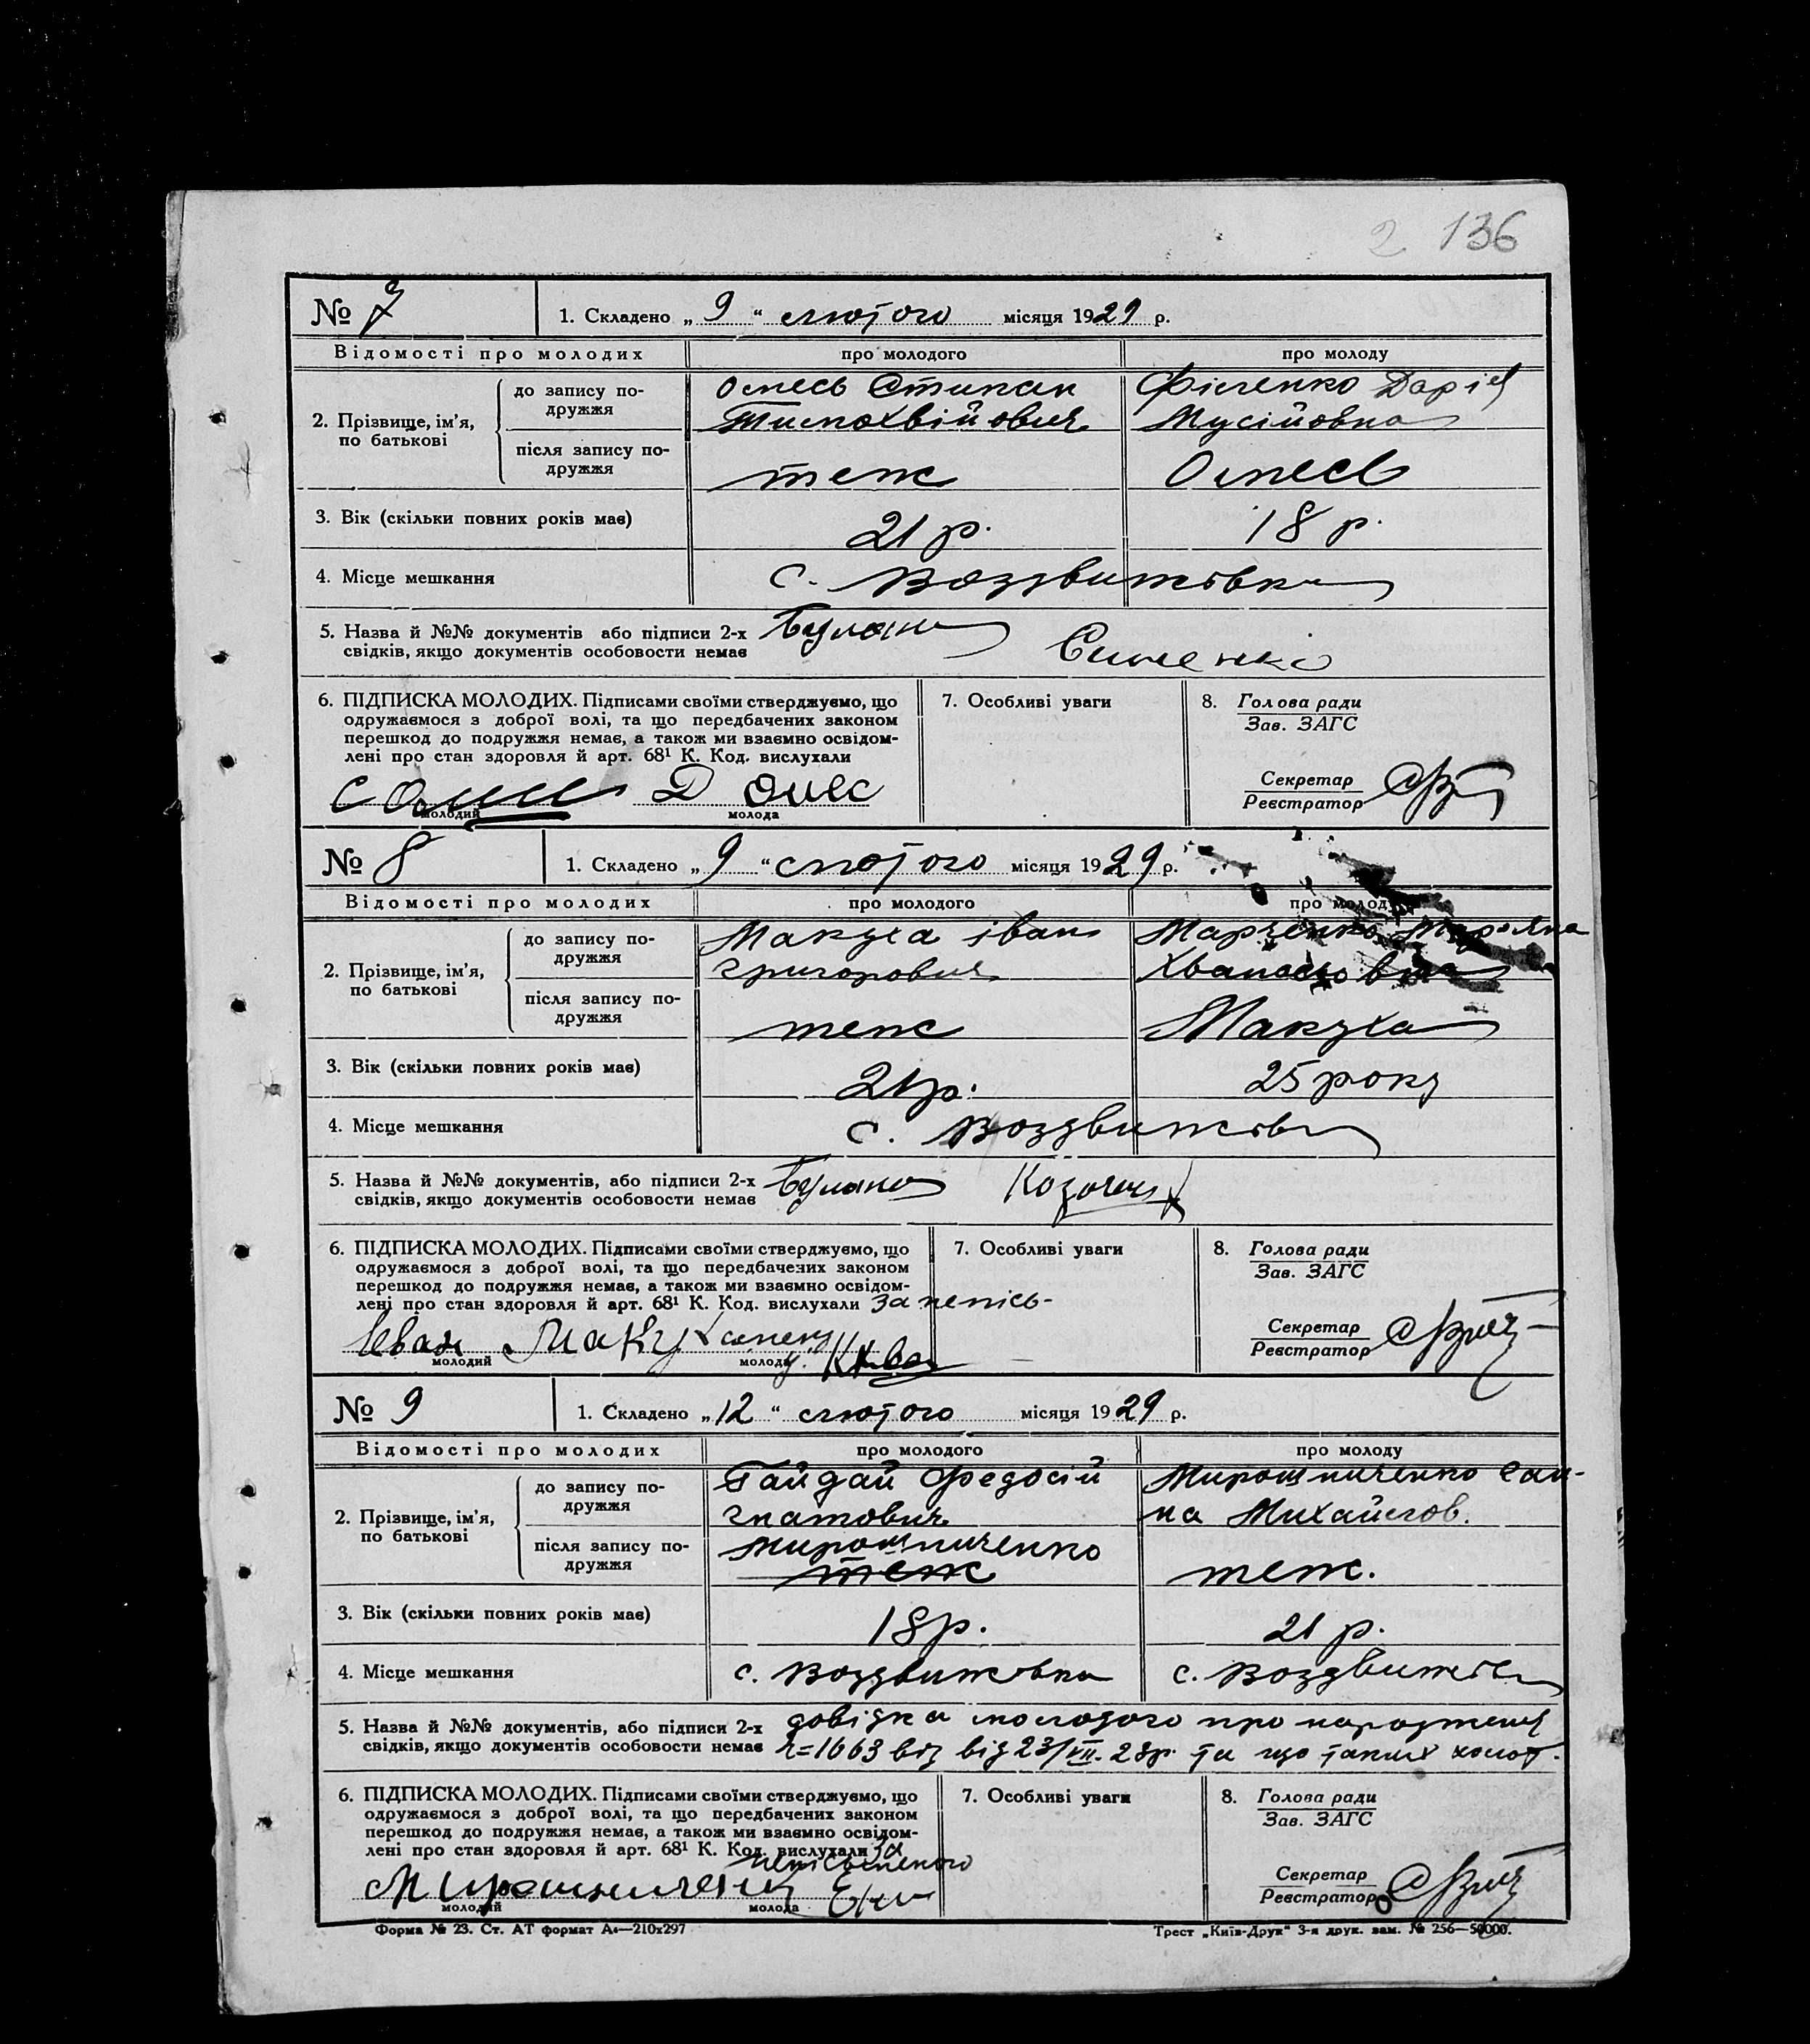 2 136
№ 7
1. Складено „ 9 “ лютого місяця 1929 р.
Відомості про молодих про молодого про молоду
2. Прізвище, ім’я, по батькові
до запису подружжя
Фісенко Дарія
Тимохвійович Мусійовна
після запису подружжя
теж
3. Вік (скільки повних років має) 21 р. 18 р.
4. Місце мешкання с. Воздвижівка
5. Назва й №№ документів або підписи 2-х
свідків, якщо документів особовости немає
6. ПІДПИСКА МОЛОДИХ. Підписами своїми стверджуємо, що
одружаємося з доброї волі, та що передбачених законом
перешкод до подружжя немає, а також ми взаємно освідом-
лені про стан здоровля й арт. 68¹ К. Код. вислухали
молодий молода
7. Особливі уваги
8. Голова ради
Зав. ЗАГС
Секретар
Реєстратор
№ 8
1. Складено „ 9 “ лютого місяця 1929 р.
Відомості про молодих про молодого про молоду
2. Прізвище, ім’я, по батькові
до запису подружжя
Макуха Іван Марченко
Григорович
після запису подружжя
теж Макуха
3. Вік (скільки повних років має) 21 р. 25 року
4. Місце мешкання с. Воздвижів
5. Назва й №№ документів, або підписи 2-х
свідків, якщо документів особовости немає
6. ПІДПИСКА МОЛОДИХ. Підписами своїми стверджуємо, що
одружаємося з доброї волі, та що передбачених законом
перешкод до подружжя немає, а також ми взаємно освідом-
лені про стан здоровля й арт. 68¹ К. Код. вислухали
Іван Макух
молодий молода
7. Особливі уваги
8. Голова ради
Зав. ЗАГС
Секретар
Реєстратор
№ 9
1. Складено „ 12 “ лютого місяця 1929 р.
Відомості про молодих про молодого про молоду
2. Прізвище, ім’я, по батькові
до запису подружжя
Гайдай Федосій Мирошниченко Ган-
Гнатович на Михайлов.
після запису подружжя
Мирошниченко
теж теж.
3. Вік (скільки повних років має) 18 р. 21 р.
4. Місце мешкання с. Воздвижівка с. Воздвижів
5. Назва й №№ документів, або підписи 2-х довідка молодого про народження
свідків, якщо документів особовости немає №=1663 від від 23/VII. 28р. та що
6. ПІДПИСКА МОЛОДИХ. Підписами своїми стверджуємо, що
одружаємося з доброї волі, та що передбачених законом
перешкод до подружжя немає, а також ми взаємно освідом-
лені про стан здоровля й арт. 68¹ К. Код. вислухали за
молодий молода
7. Особливі уваги
8. Голова ради
Зав. ЗАГС
Секретар
Реєстратор
Форма № 23. Ст. АТ формат А₄—210х297
Трест „Київ-Друк“ 3-я друк. зам. № 256—50000.